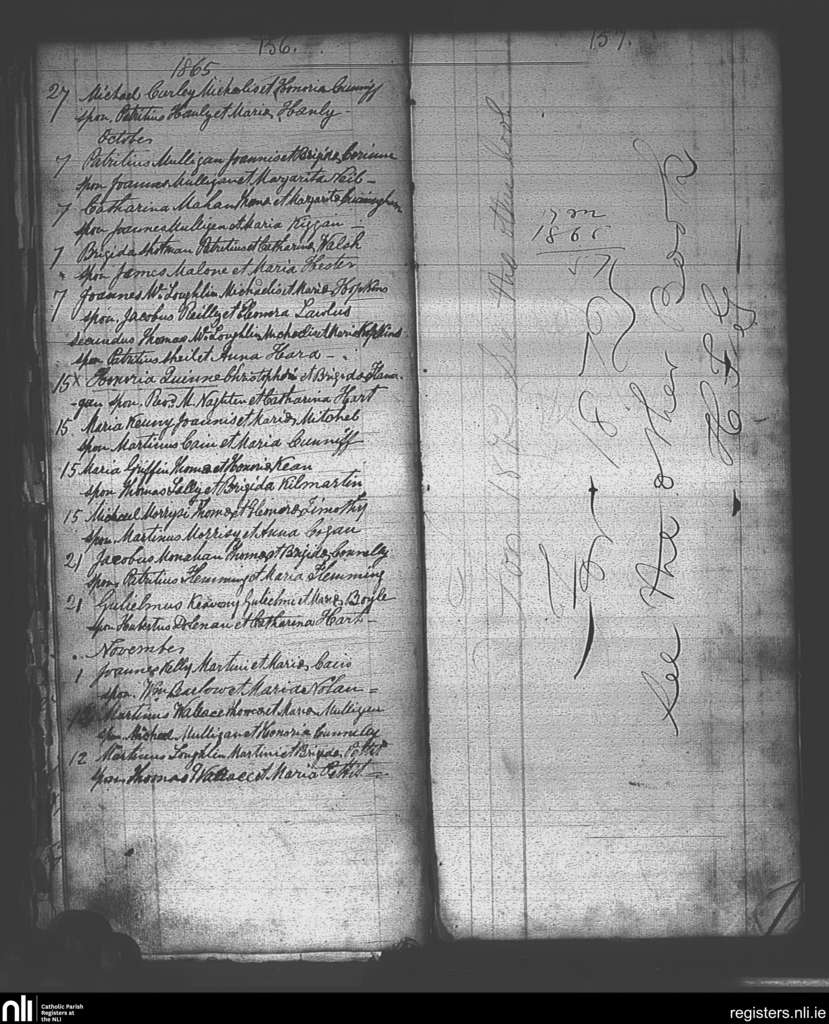 156.
1865
27 Michael Curley Michaelis et Honoria Cunniff
spon. Patritius Hanly et Maria Hanly -
October
7 Patritius Mulligan Joannis et Brigida Corinne
spon Joannes Mulligan et Margarita Neil -
7 Catharina Mahan Thomæ et Margarita Cunningham
spon Joannes Mulligan et Maria Kiggan -
7 Brigida Patritius et Catharina Walsh
" spon James Malone et Maria Hester
7 Joannes McLoughlin Michaelis et Maria Hopkins
spon. Jacobus Reilly et Elenora
secundus Thomas McLoughlin Michaelis et Maria Hopkins
spon Patritius Sheil et Anna Hara -
15 x Honoria Quinne Christophori et Brigida Flana
-gan spon. Rev. M. Naghten et Catharina Hart
15 Maria Keuny Joannis et Maria Mitchel
spon Martinus Cain et Maria Cunniff
15 Maria Griffin Thomæ et Honoria Kean
spon Thomas Lally et Brigida Kilmartin
15 Michael Morrysi Thomæ et Elenora Timothy
spon Martinus Morrisy et Anna Cogan
21 Jacobus Monahan Thomæ et Brigida Connolly
spon. Patritius Flemming et Maria Flemming
21 Gulielmus Keaveny Gulielmi et Maria Boyle
spon Hubertus Dolenan et Catharina Hart -
November
1 Joannes Kelly Martini et Maria Cain
spon. Wm Barlow et Maria Nolan =
Martinus Wallace Thomæ et Maria Mulligan
spon Michael Mulligan et Honoria Cunnully
12 Martinus Loughlin Martini et Brigida Pettit
spon Thomas Wallace et Maria Pettit =
157.
For 1872 See the other book
1865
57
For - 1872
See the other Book
nli Catholic Parish
Registers at
the NLI
registers.nli.ie